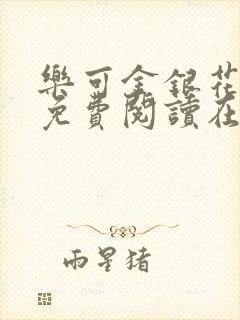 樂可金銀花
免費閱讀在
雨星豬